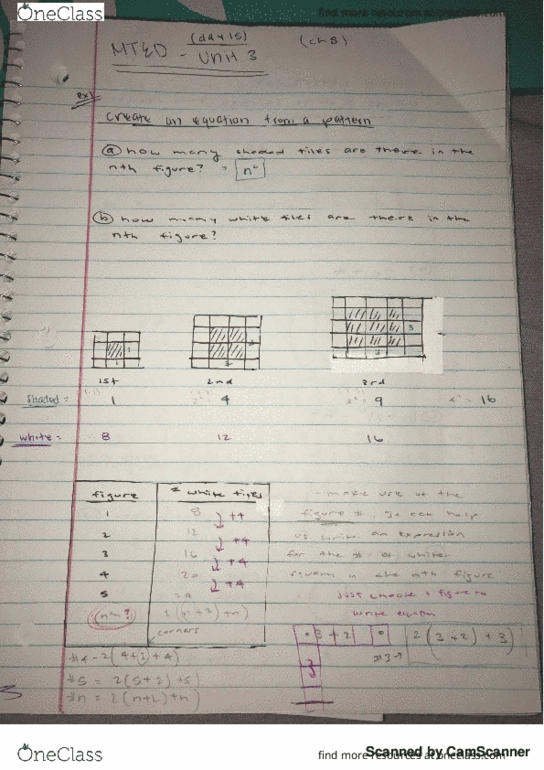 OneClass
find more resources at oneclass.com
(day 15)
(ch 8)
MTED - Unit 3
ex1
create an equation from a pattern
(a) how many shaded tiles are there in the
nth figure? = n²
(b) how many white tiles are there in the
nth figure?
1st 2nd 3rd
shaded = 1 4 9 16
white = 8 12 16
figure # white tiles
1 8
+4
2 12
+4
3 16
+4
4 20
+4
5
corners
- make use of the
figure #, it can help
us write an expression
for the # of white
squares in the nth figure
just choose a figure to
write equation
3+2
2(3+2)+3
#3→
#5 = 2(5+2)+5)
#n = 2(n+2)+n)
OneClass
find more resources at oneclass.com
Scanned by CamScanner